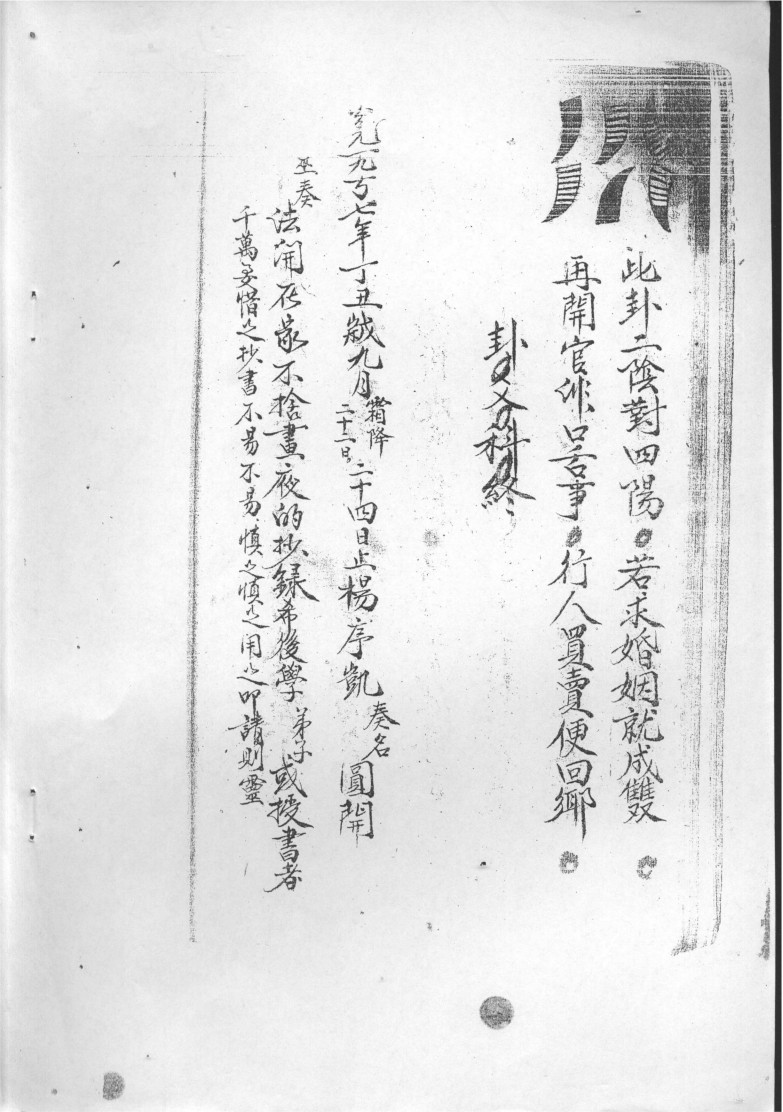 此卦二陰對四陽。若求婚姻就成雙。
再開官非口舌事。行人買賣便回鄉。
卦父科終
公元一九九七年丁丑歲九月霜降二十二日二十四日止楊序凱奏名圓開
巫奏法開在家不捨晝夜的抄錄希後學弟子或授書者
千萬要惜之抄書不易不易慎之慎之用之叩請則靈